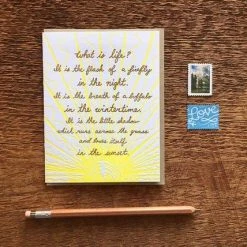 What is life?
It is the flash of a firefly
in the night.
It is the breath of a buffalo
in the wintertime.
It is the little shadow
which runs across the grass
and loses itself
in the sunset.
Love